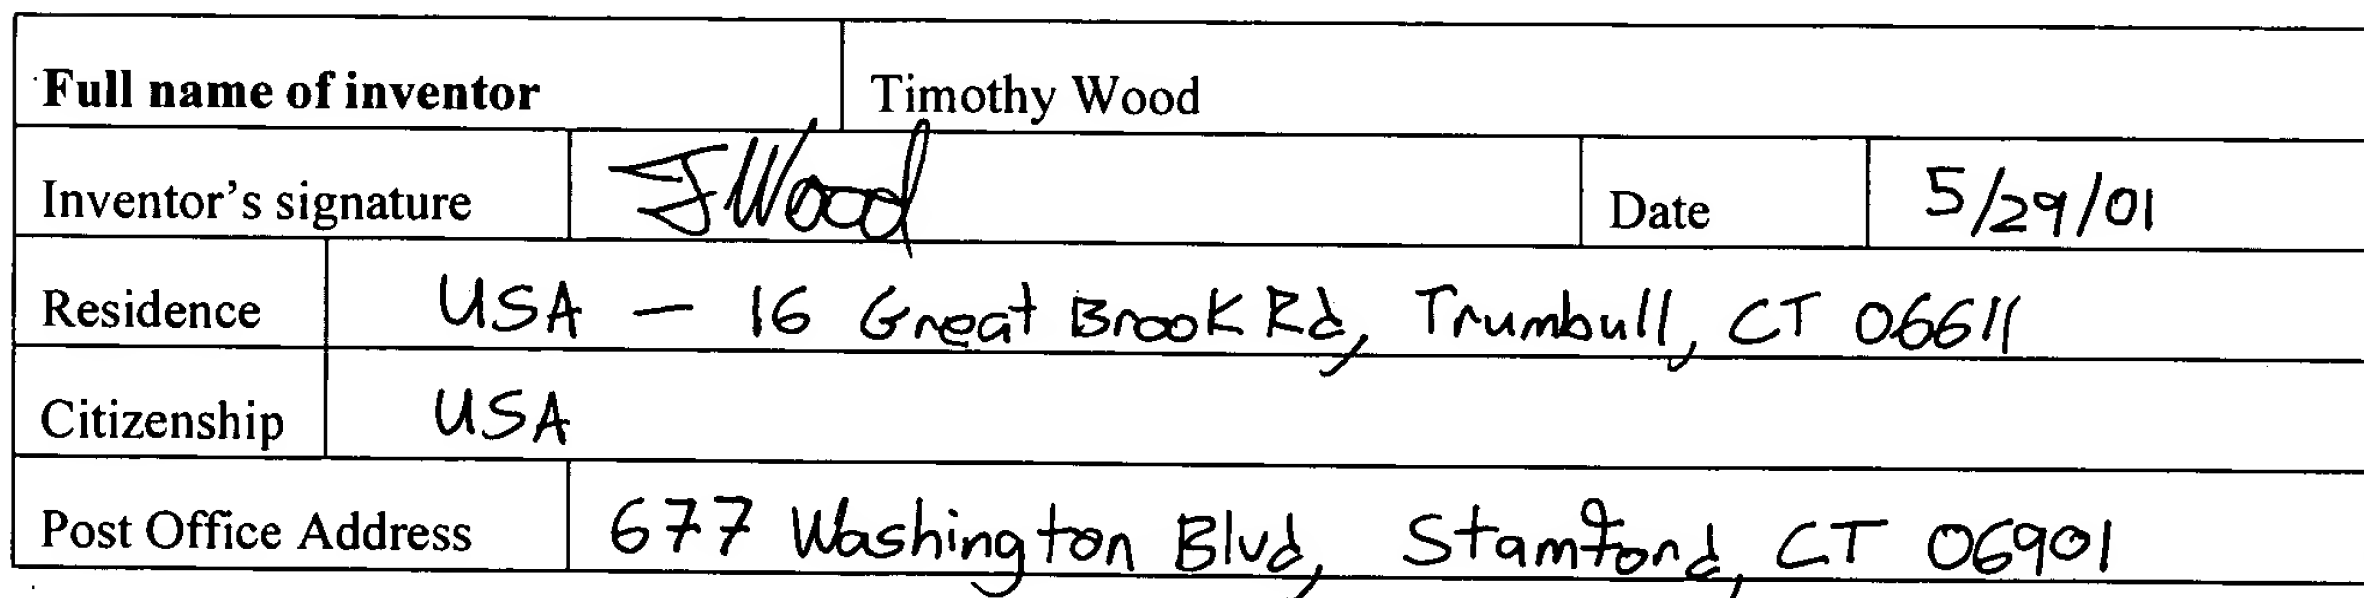 Full name of inventor Timothy Wood
Inventor's signature TWood Date 5/29/01
Residence USA — 16 Great Brook Rd, Trumbull, CT 06611
Citizenship USA
Post Office Address 677 Washington Blvd, Stamford, CT 06901